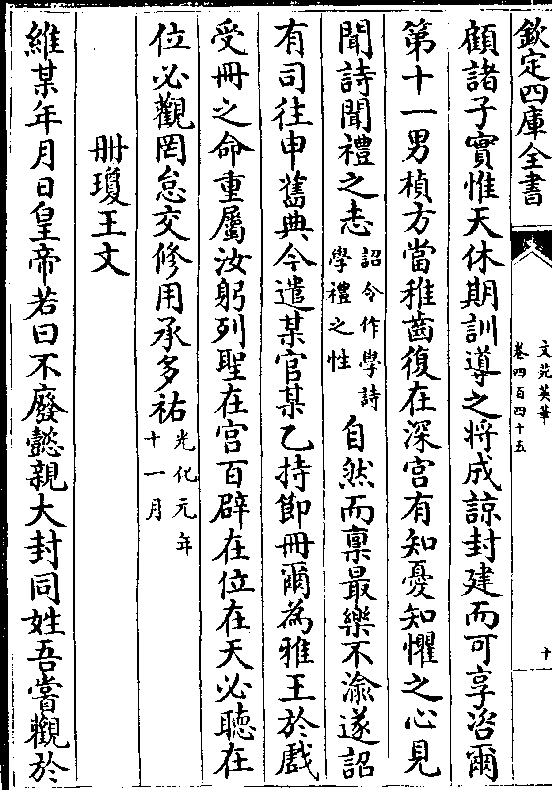 欽定四庫全書
文苑英華
卷四百四十五
十
顧諸子實惟天休期訓導之将成諒封建而可享咨爾
第十一男楨方當稚齒復在深宫有知憂知懼之心見
聞詩聞禮之志詔令作學詩
學禮之性自然而稟最樂不渝遂詔
有司徃申舊典今遣某官某乙持節冊爾為雅王於戲
受冊之命重屬汝躬列聖在宫百辟在位在天必聽在
位必觀罔怠交修用承多祐光化元年
十一月
冊瓊王文
維某年月日皇帝若曰不廢懿親大封同姓吾嘗觀於